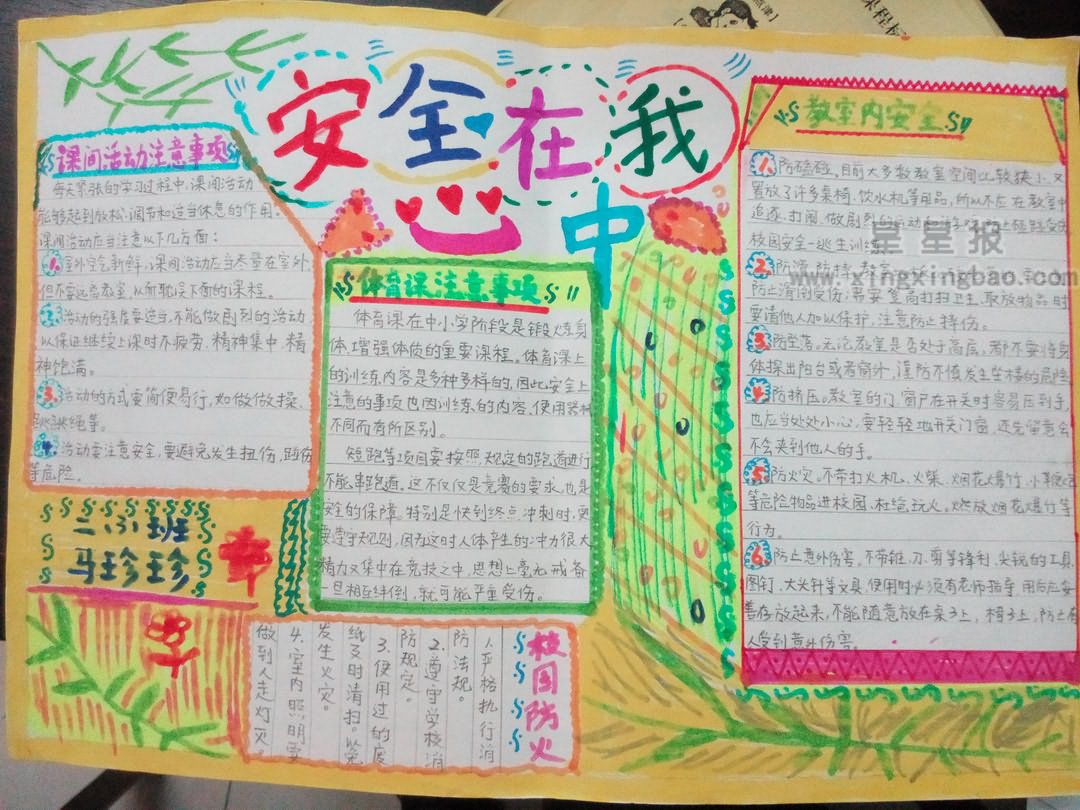 课程标
安全在我
心中
课间活动注意事项
每天紧张的学习过程中,课间活动
能够起到放松、调节和适当休息的作用。
课间活动应当注意以下几方面:
1.室外空气新鲜,课间活动应当尽量在室外,
但不要远离教室,从而耽误下面的课程。
2.活动的强度要适当,不能做剧烈的活动
以保证继续上课时不疲劳、精神集中、精
神饱满。
3.活动的方式要简便易行,如做做操、
跳跳绳等。
4.活动要注意安全,要避免发生扭伤,
等危险。
二、小班
马珍珍
体育课注意事项
体育课在中小学阶段是锻炼身
体,增强体质的重要课程。体育课上
的训练内容是多种多样的,因此安全上
注意的事项也因训练的内容、使用器械
不同而有所区别。
短跑等项目要按照规定的跑道进行
不能串跑道。这不仅仅是竞赛的要求,也是
安全的保障。特别是快到终点冲刺时,更
要遵守规则,因为这时人体产生的冲力很大
精力又集中在竞技之中,思想上毫无戒备
旦相互绊倒,就可能严重受伤。
校园防火
1.严格执行消
防法规。
2.遵守学校消
防规定。
3.使用过的废
纸及时清扫。以免
发生火灾。
4.室内照明要
做到人走灯灭
教室内安全
1.防磕碰。目前大多数教室空间比较狭小,又
置放了许多桌椅、饮水机等用品,所以不应在教室中
追逐、打闹、做剧烈的运动和
校园安全-逃生训练
星星报
www.xingxingbao.com
2.防滑、防摔。教室
防止滑倒受伤;需要登高打扫卫生、取放物品时
要请他人加以保护,注意防止摔伤。
3.防坠落。无论教室是否处于高层,都不要将身
体探出阳台或者窗外,谨防不慎发生坠楼的危险
4.防挤压。教室的门、窗户在开关时容易压到手,
也应当处处小心,要轻轻地开关门窗,还先留意会
不会夹到他人的手。
5.防火灾。不带打火机、火柴、烟花爆竹、小
等危险物品进校园,杜绝玩火、燃放烟花爆竹等
行为。
6.防止意外伤害。不带锥、刀、剪等锋利、尖锐的工具,
图钉、大头针等文具,使用时必须有老师指导,用后应妥
善存放起来,不能随意放在桌子上,椅子上,防止有
人受到意外伤害。